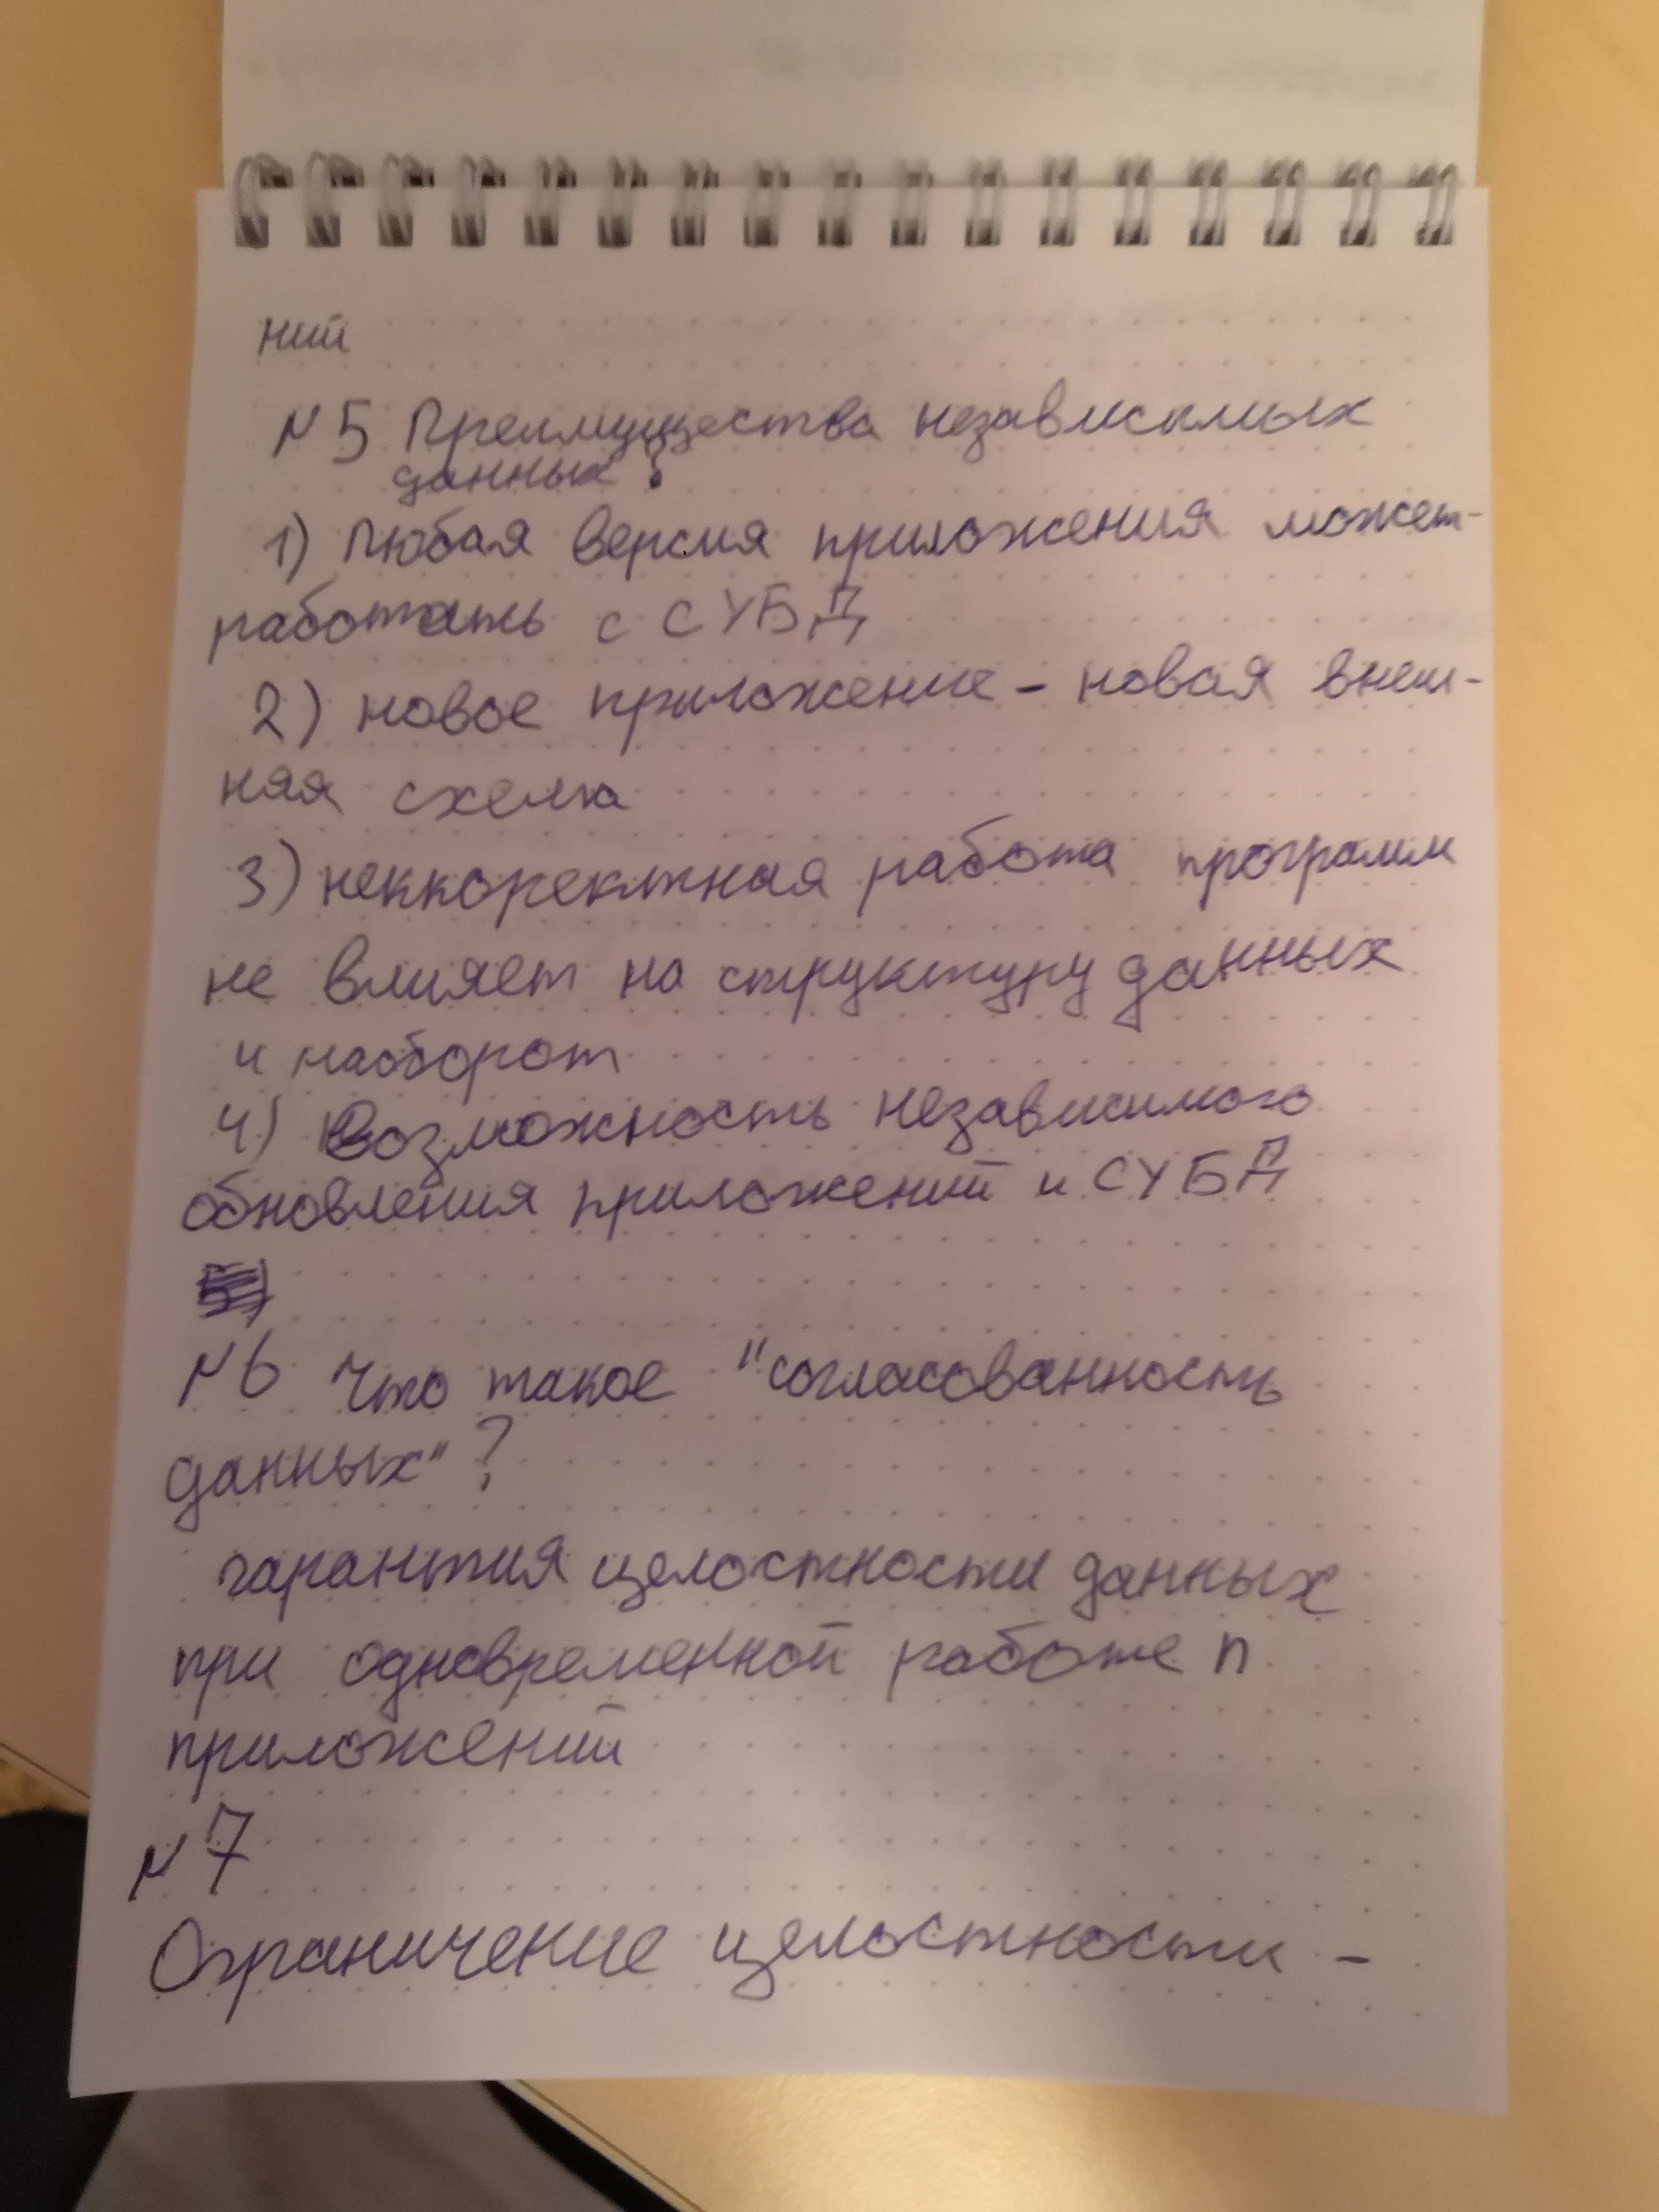 ний
N5 Преимущества независимых
данных?
1) Любая версия приложения может
работать с СУБД
2) новое приложение - новая внеш-
няя схема
3) неккоректная работа программ
не влияет на структуру данных
и наоборот
4) Возможность независимого
обновления приложений и СУБД
N6 Что такое "согласованность
данных"?
гарантия целостности данных
при одновременной работе n
приложений
N7
Ограничение целостности -